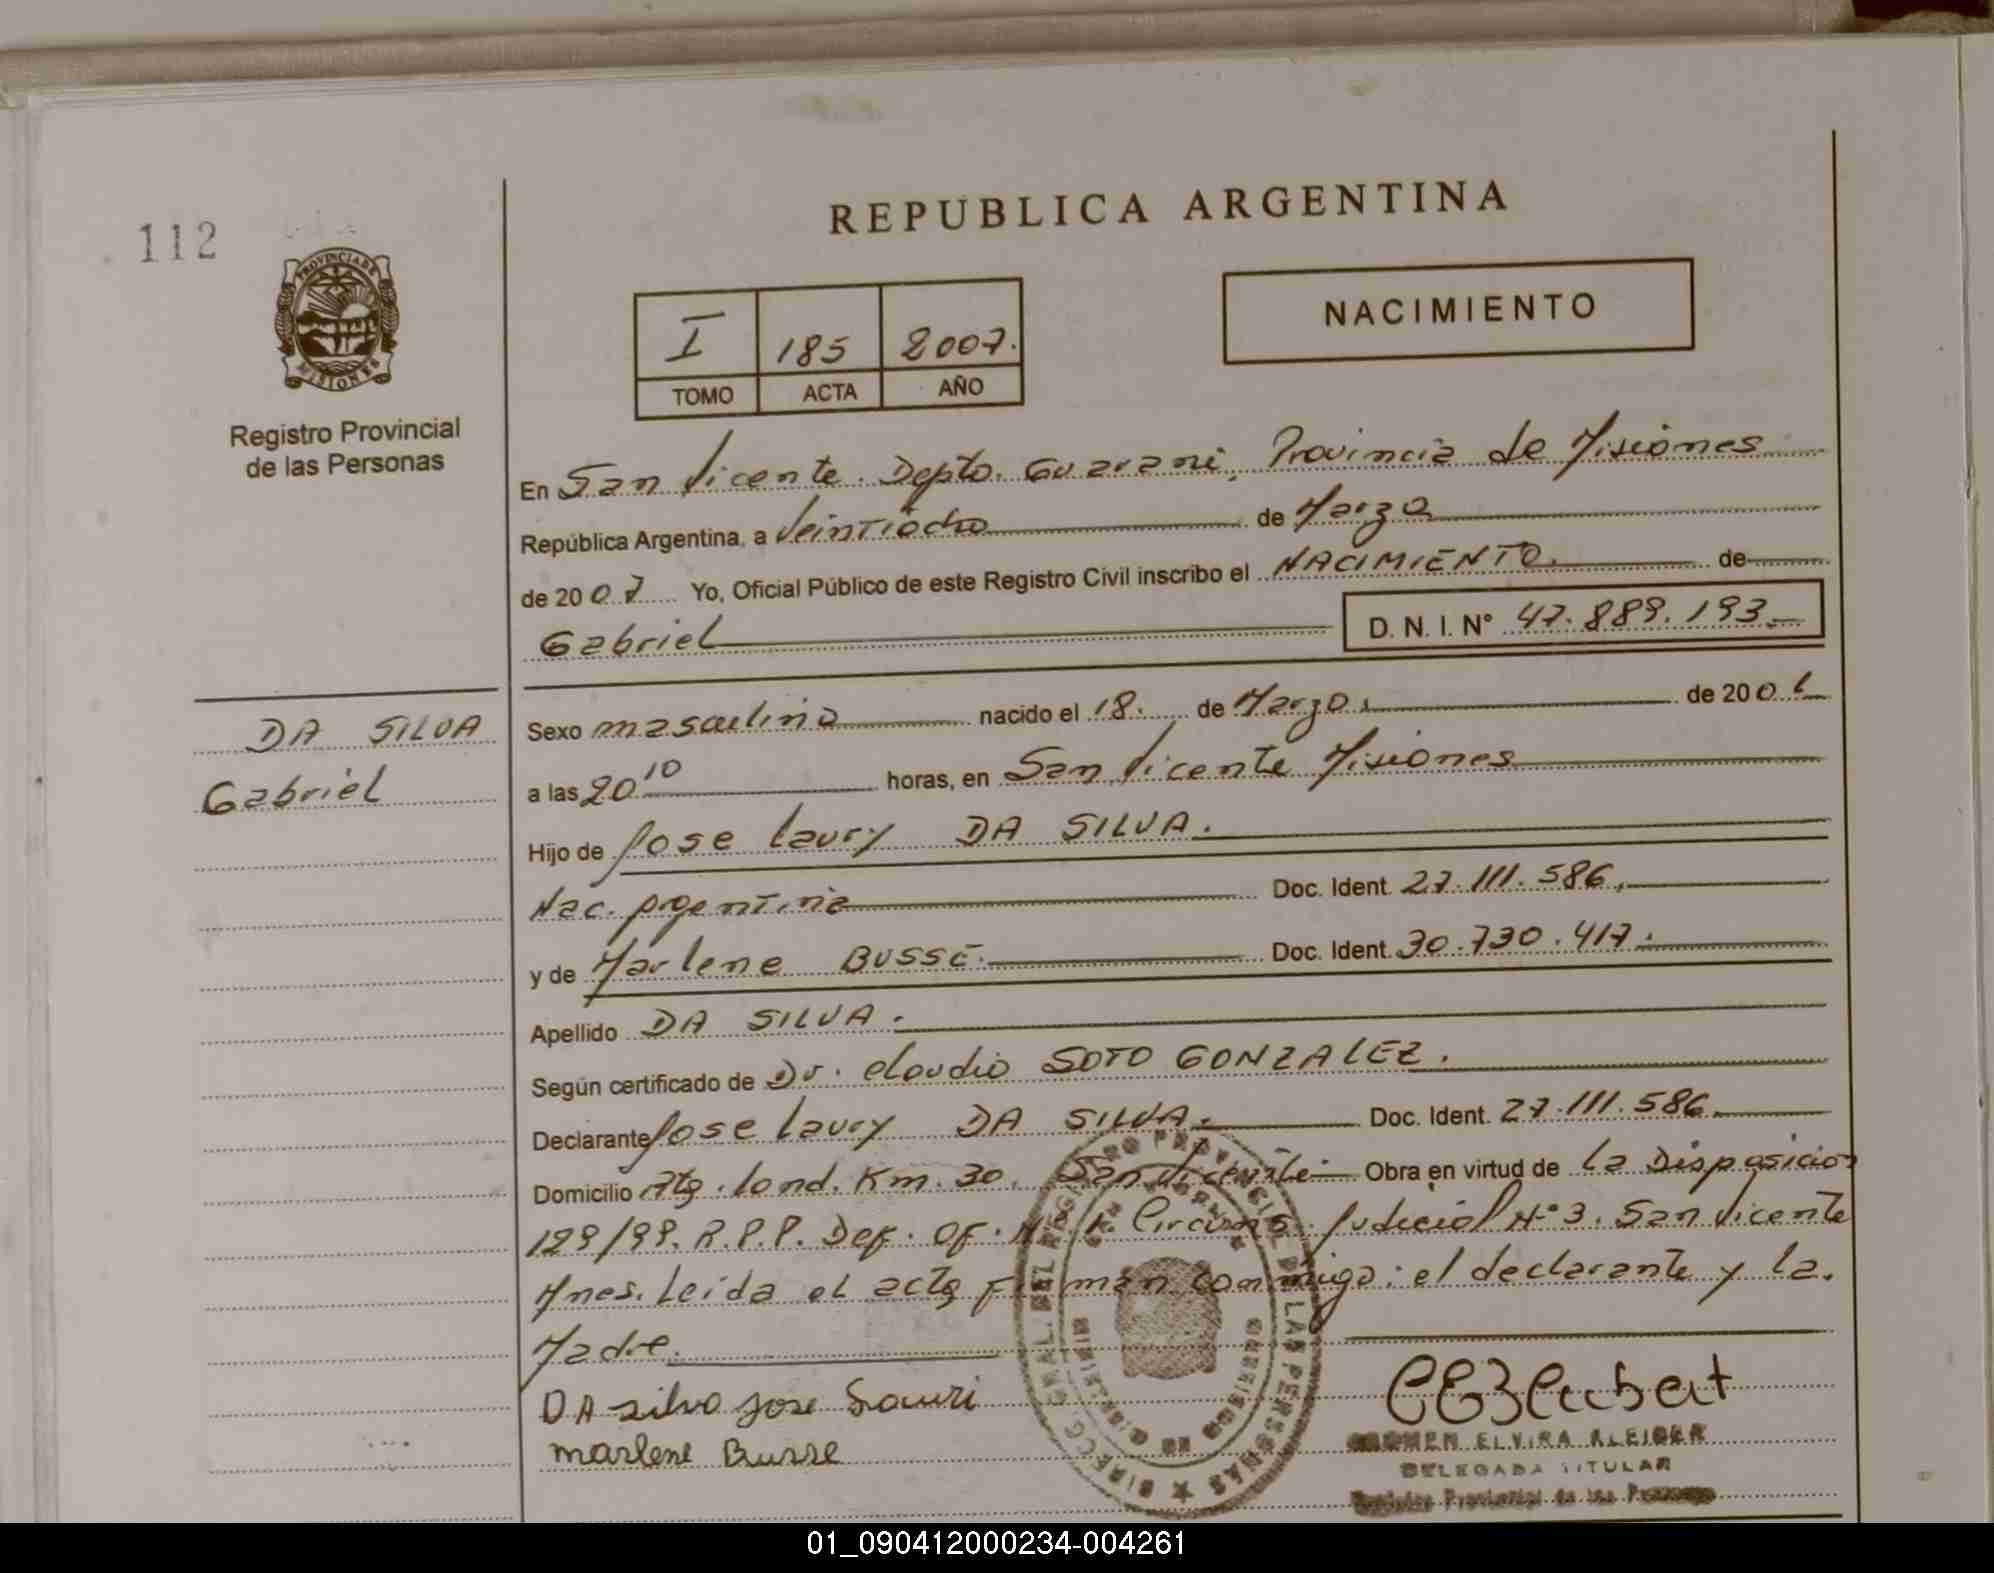 112
REPUBLICA ARGENTINA
PROVINCIA DE
MISIONES
Registro Provincial
de las Personas
I 185 2007.
TOMO ACTA AÑO
NACIMIENTO
En San Vicente. Depto. Guarani, Provincia de Misiones
República Argentina, a Veintiocho de Marzo
de 2007 Yo, Oficial Público de este Registro Civil inscribo el NACIMIENTO. de
Gabriel D. N. I. N° 47.889.193.
DA SILVA
Gabriel
Sexo masculino nacido el 18. de Marzo. de 200
a las 20 10 horas, en San Vicente Misiones
Hijo de Jose Laury DA SILVA.
Nac. Argentina Doc. Ident. 27.111.586.
y de Marlene BUSSE. Doc. Ident. 30.730.417.
Apellido DA SILVA.
Según certificado de Dr. Claudio SOTO GONZALEZ.
Declarante Jose Laury DA SILVA. Doc. Ident. 27.111.586.
Domicilio Km. 30. San Vicente Obra en virtud de La Disposicion
129/99. R.P.P. Def. Of. Circuns. Judicial N° 3. San Vicente
Mnes. Leida el acta firman conmigo: el declarante y la.
Madre.
DA silva Jose Lauri
marlene Busse
CARMEN ELVIRA
DELEGADA TITULAR
Registro Provincial de las Personas
01_090412000234-004261